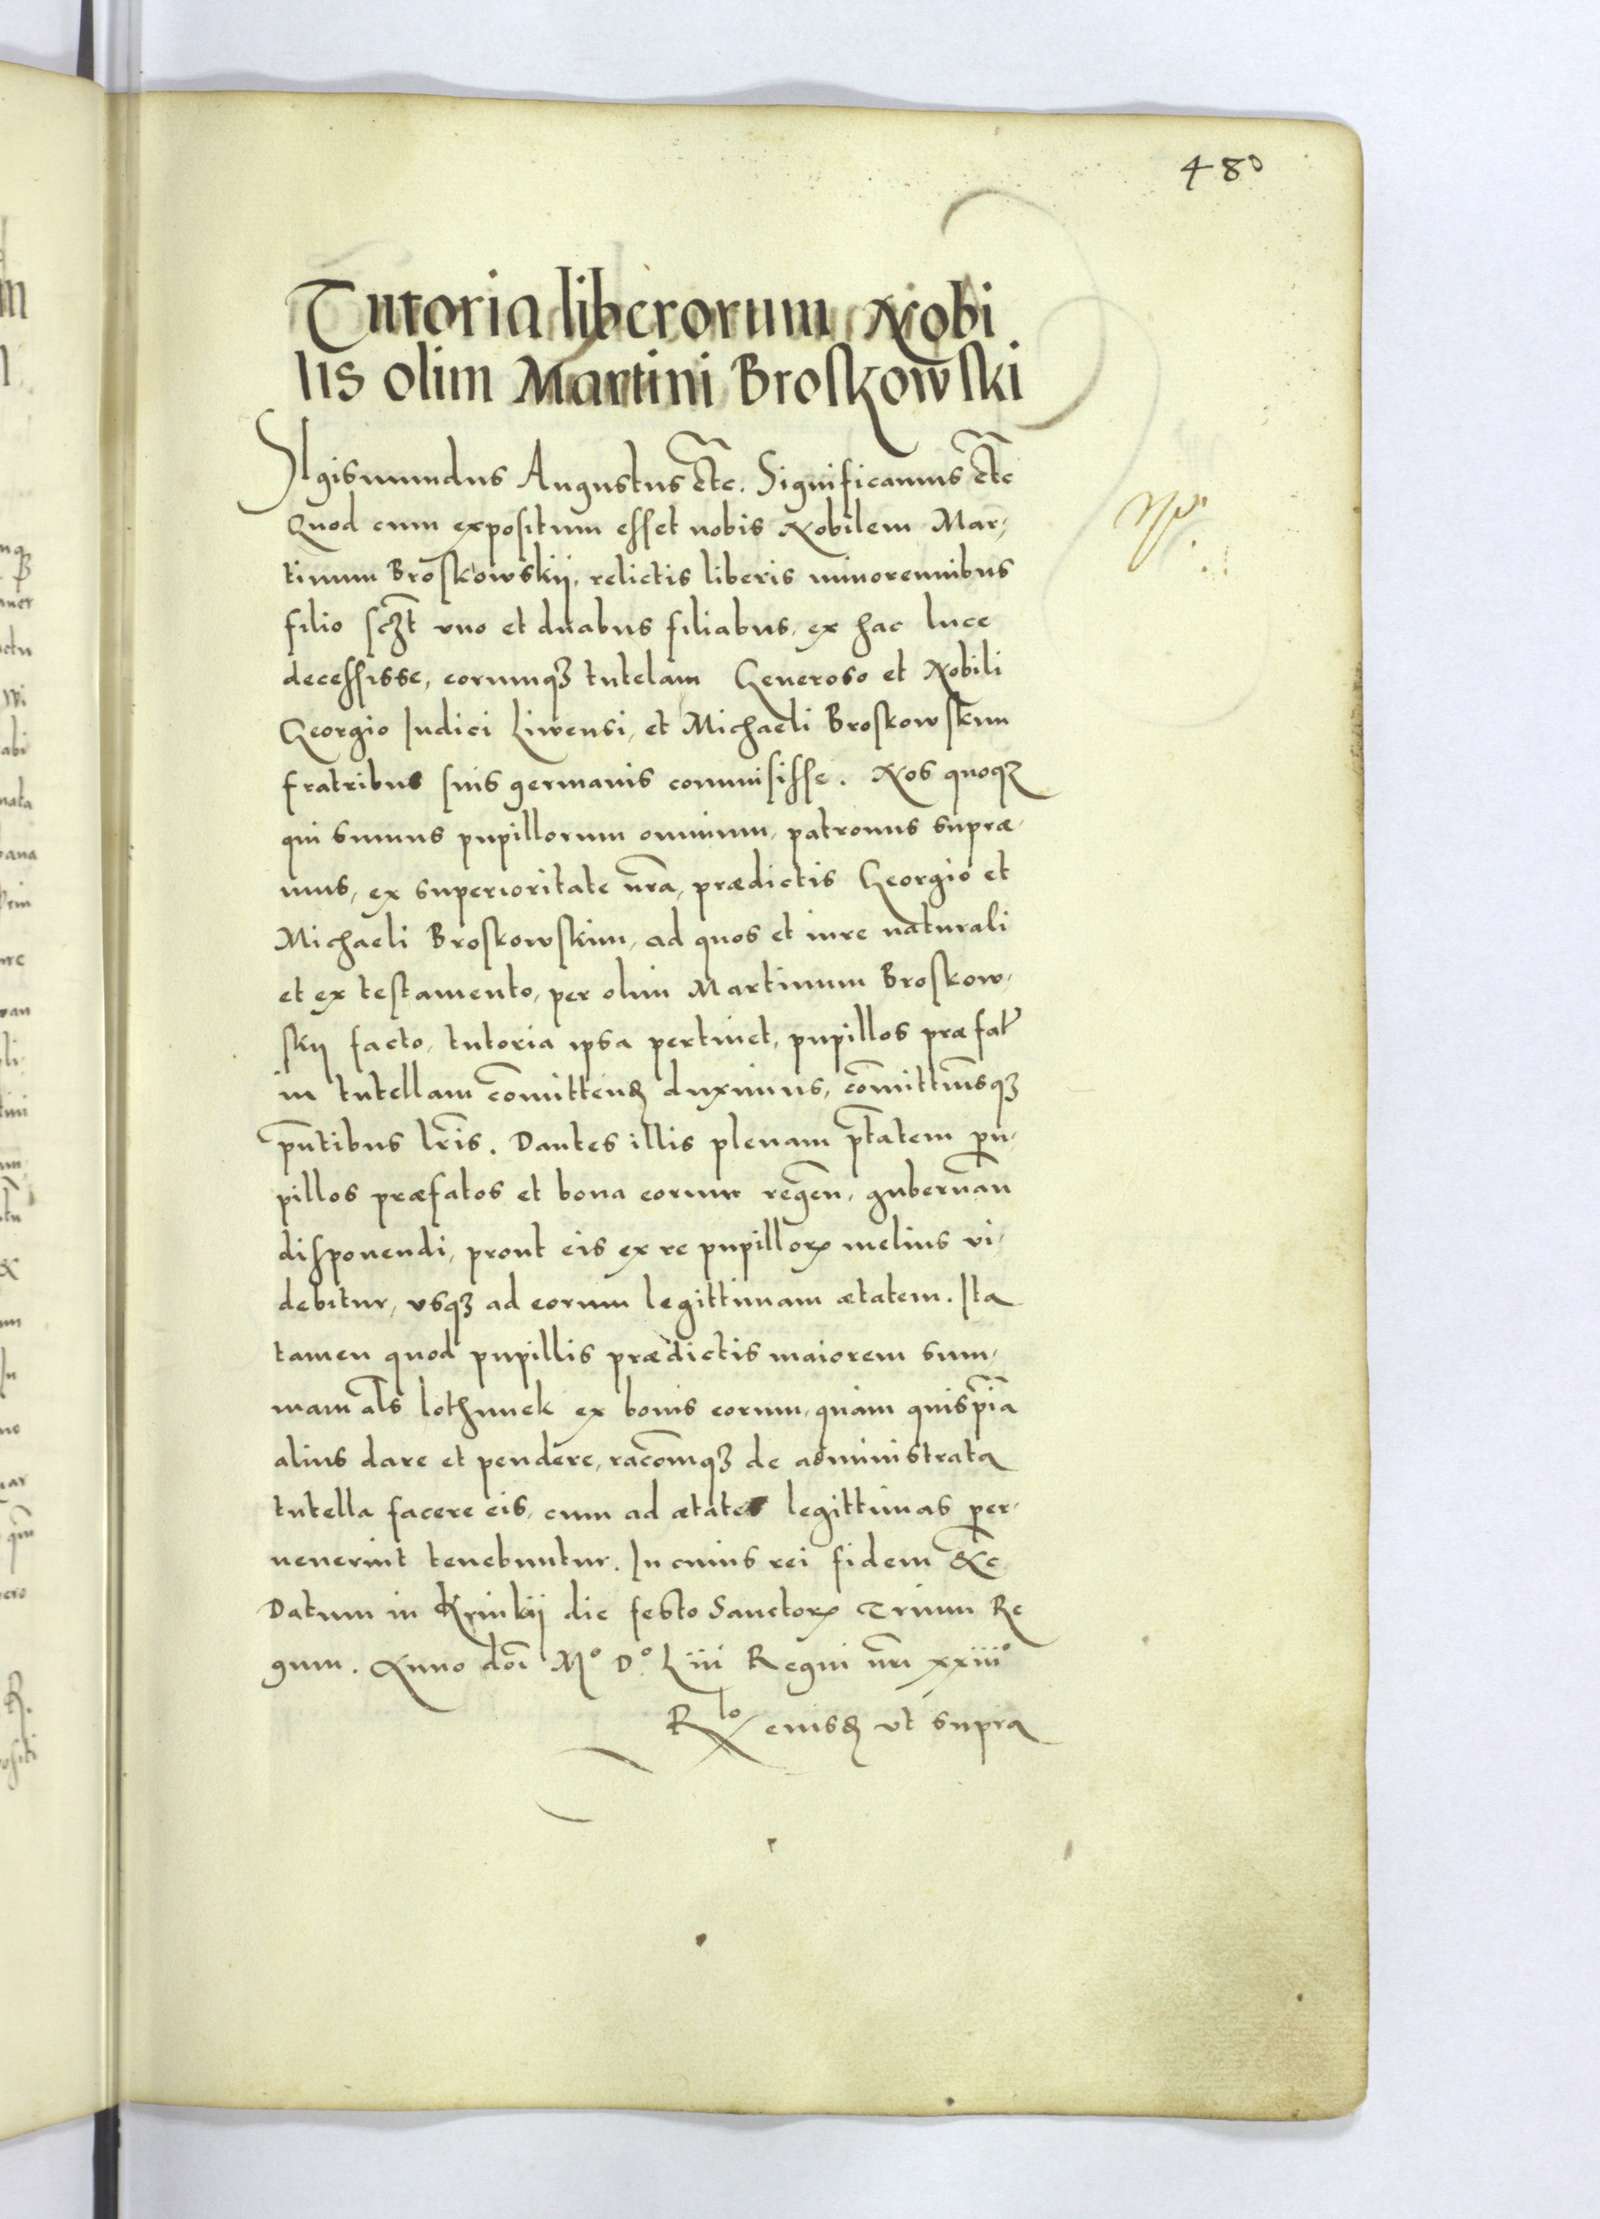 480
Tutoria liberorum Nobi
lis olim Martini Broskowski
Sigismundus Augustus etc. Significamus etc
Quod cum expositum esset nobis Nobilem Mar,
tinum Broskowskij, relictis liberis minorennibus
filio sczt vno et duabus filiabus, ex hac luce
decessisse, eorumqꝫ tutelam Generoso et Nobili
Georgio Iudici Liwensi, et Michaeli Broskowskim
fratribus suis germanis commisisse. Nos quoqꝫ
qui sumus pupillorum omnium, patronus supræ,
mus, ex superioritate nr̃a, prædictis Georgio et
Michaeli Broskowskim, ad quos et iure naturali
et ex testamento, per olim Martinum Broskow,
skij facto, tutoria ipsa pertinet, pupillos præfat
in tutellam com̃itten duximus, com̃ittimusqꝫ
pñtibus lr̃is. Dantes illis plenam ptãtem pu,
pillos præfatos et bona eorum regen̄, gubernan̄
disponendi, prout eis ex re pupilloꝝ melius vi,
debitur, vsqꝫ ad eorum legittimam ætatem. Ita
tamen quod pupillis prædictis maiorem sum,
mam al̃s lothunek ex bonis eorum, quam quispiā
alius dare et pendere, racōmqꝫ de administrata
tutella facere eis, cum ad ætates legittimas per,
uenerint tenebuntur. In cuius rei fidem &c
Datum in Krinkij die festo Sanctoꝝ Trium Re
gum. Anno dōi Mº Dº Liii Regni nr̃i xxiiiº
Rlo eiusd ut supra